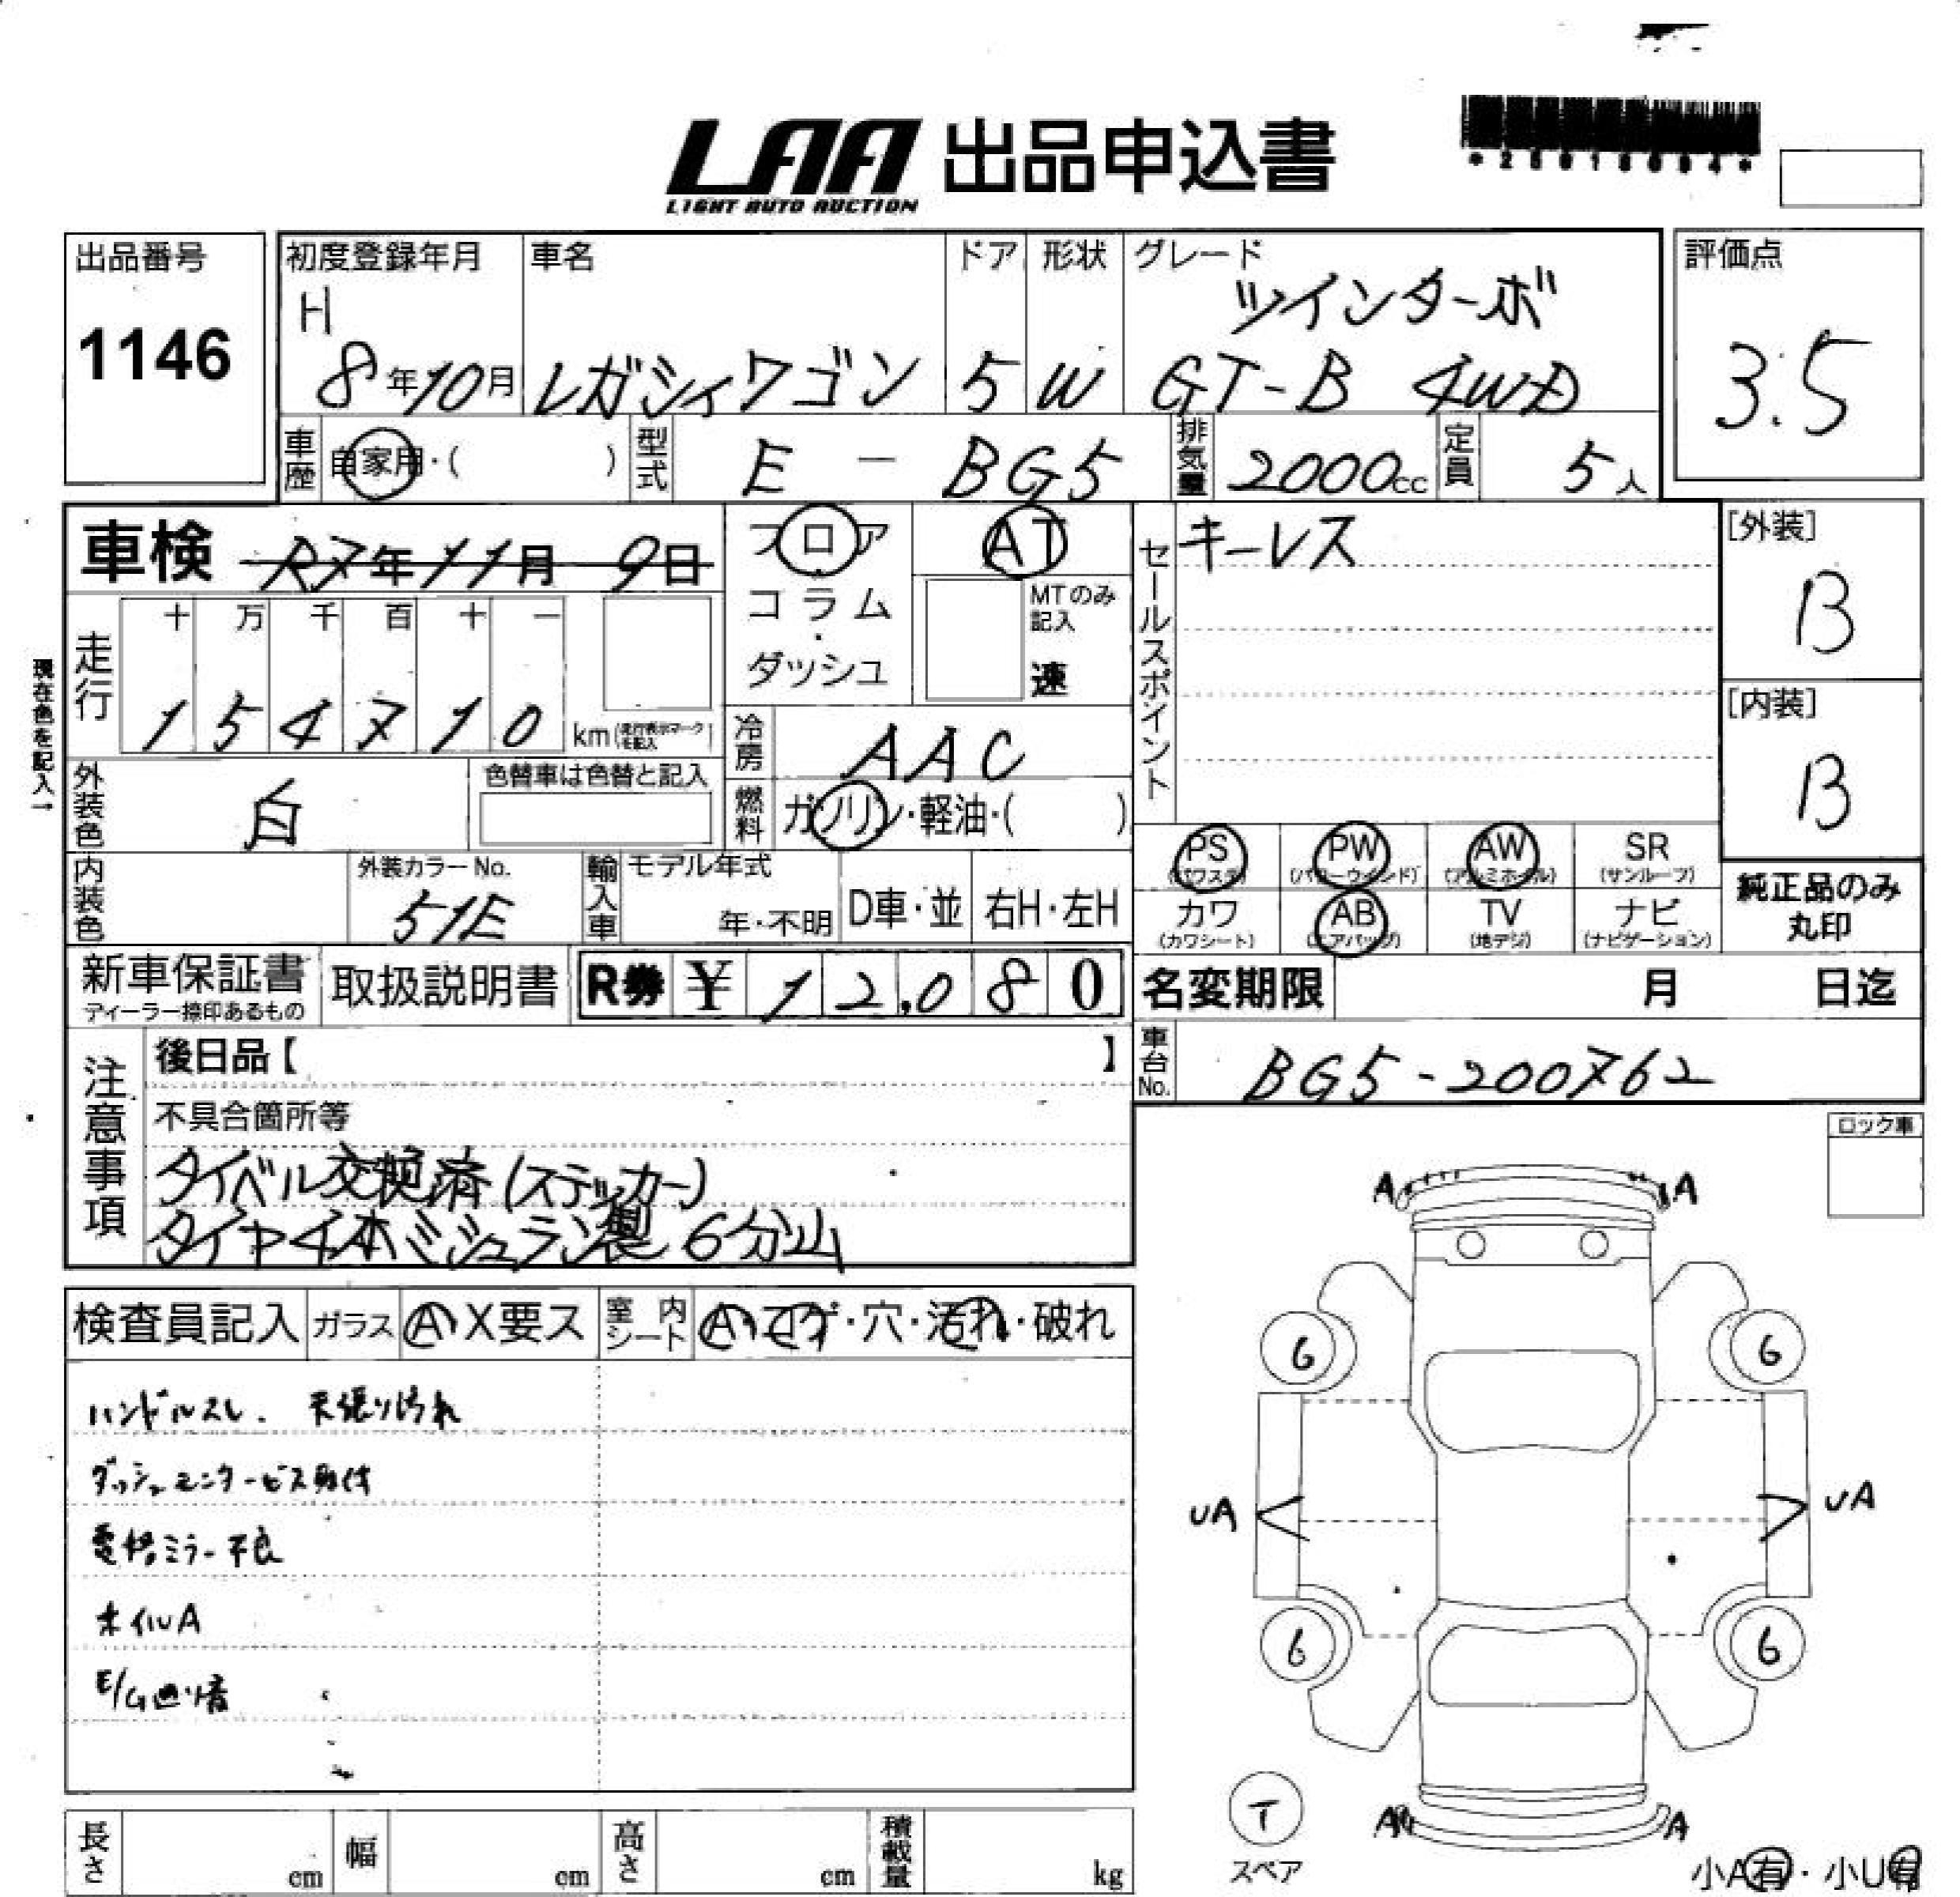 LAA 出品申込書
LIGHT AUTO AUCTION
出品番号
1146
初度登録年月
H
8年10月
車名
レガシィワゴン
ドア
5
形状
W
グレード
ツインターボ
GT-B 4WD
評価点
3.5
車歴
自家用・( )
型式
E - BG5
排気量
2000cc
定員
5人
車検 R7年11月9日
フロア
コラム
・
ダッシュ
AT
MTのみ
記入
速
セールスポイント
キーレス
[外装]
B
[内装]
B
現在色を記入→
走行
十 万 千 百 十 一
1 5 4 7 1 0 km(走行表示マークを記入)
冷房
AAC
燃料
ガソリン・軽油・( )
外装色
白
色替車は色替と記入
PS (パワステ)
PW (パワーウインド)
AW (アルミホイル)
SR (サンルーフ)
カワ (カワシート)
AB (エアバッグ)
TV (地デジ)
ナビ (ナビゲーション)
純正品のみ
丸印
内装色
外装カラーNo.
51E
輸入車
モデル年式
年・不明
D車・並
右H・左H
新車保証書
ディーラー捺印あるもの
取扱説明書
R券 ¥ 12,080
名変期限 月 日迄
車台No.
BG5-200762
注意事項
後日品【 】
不具合箇所等
タイベル交換済(ステッカー)
タイヤ4本ミシュラン製 6分山
ロック車
検査員記入
ガラス
A・X要ス
室内シート
A・コゲ・穴・汚れ・破れ
ハンドルスレ. 天張り汚れ
ダッシュモニタービス取付
電格ミラー不良
ホイルA
E/G廻り音
A A
6 6
UA UA
6 6
T
スペア
A A
小A有・小U有
長さ cm
幅 cm
高さ cm
積載量 kg